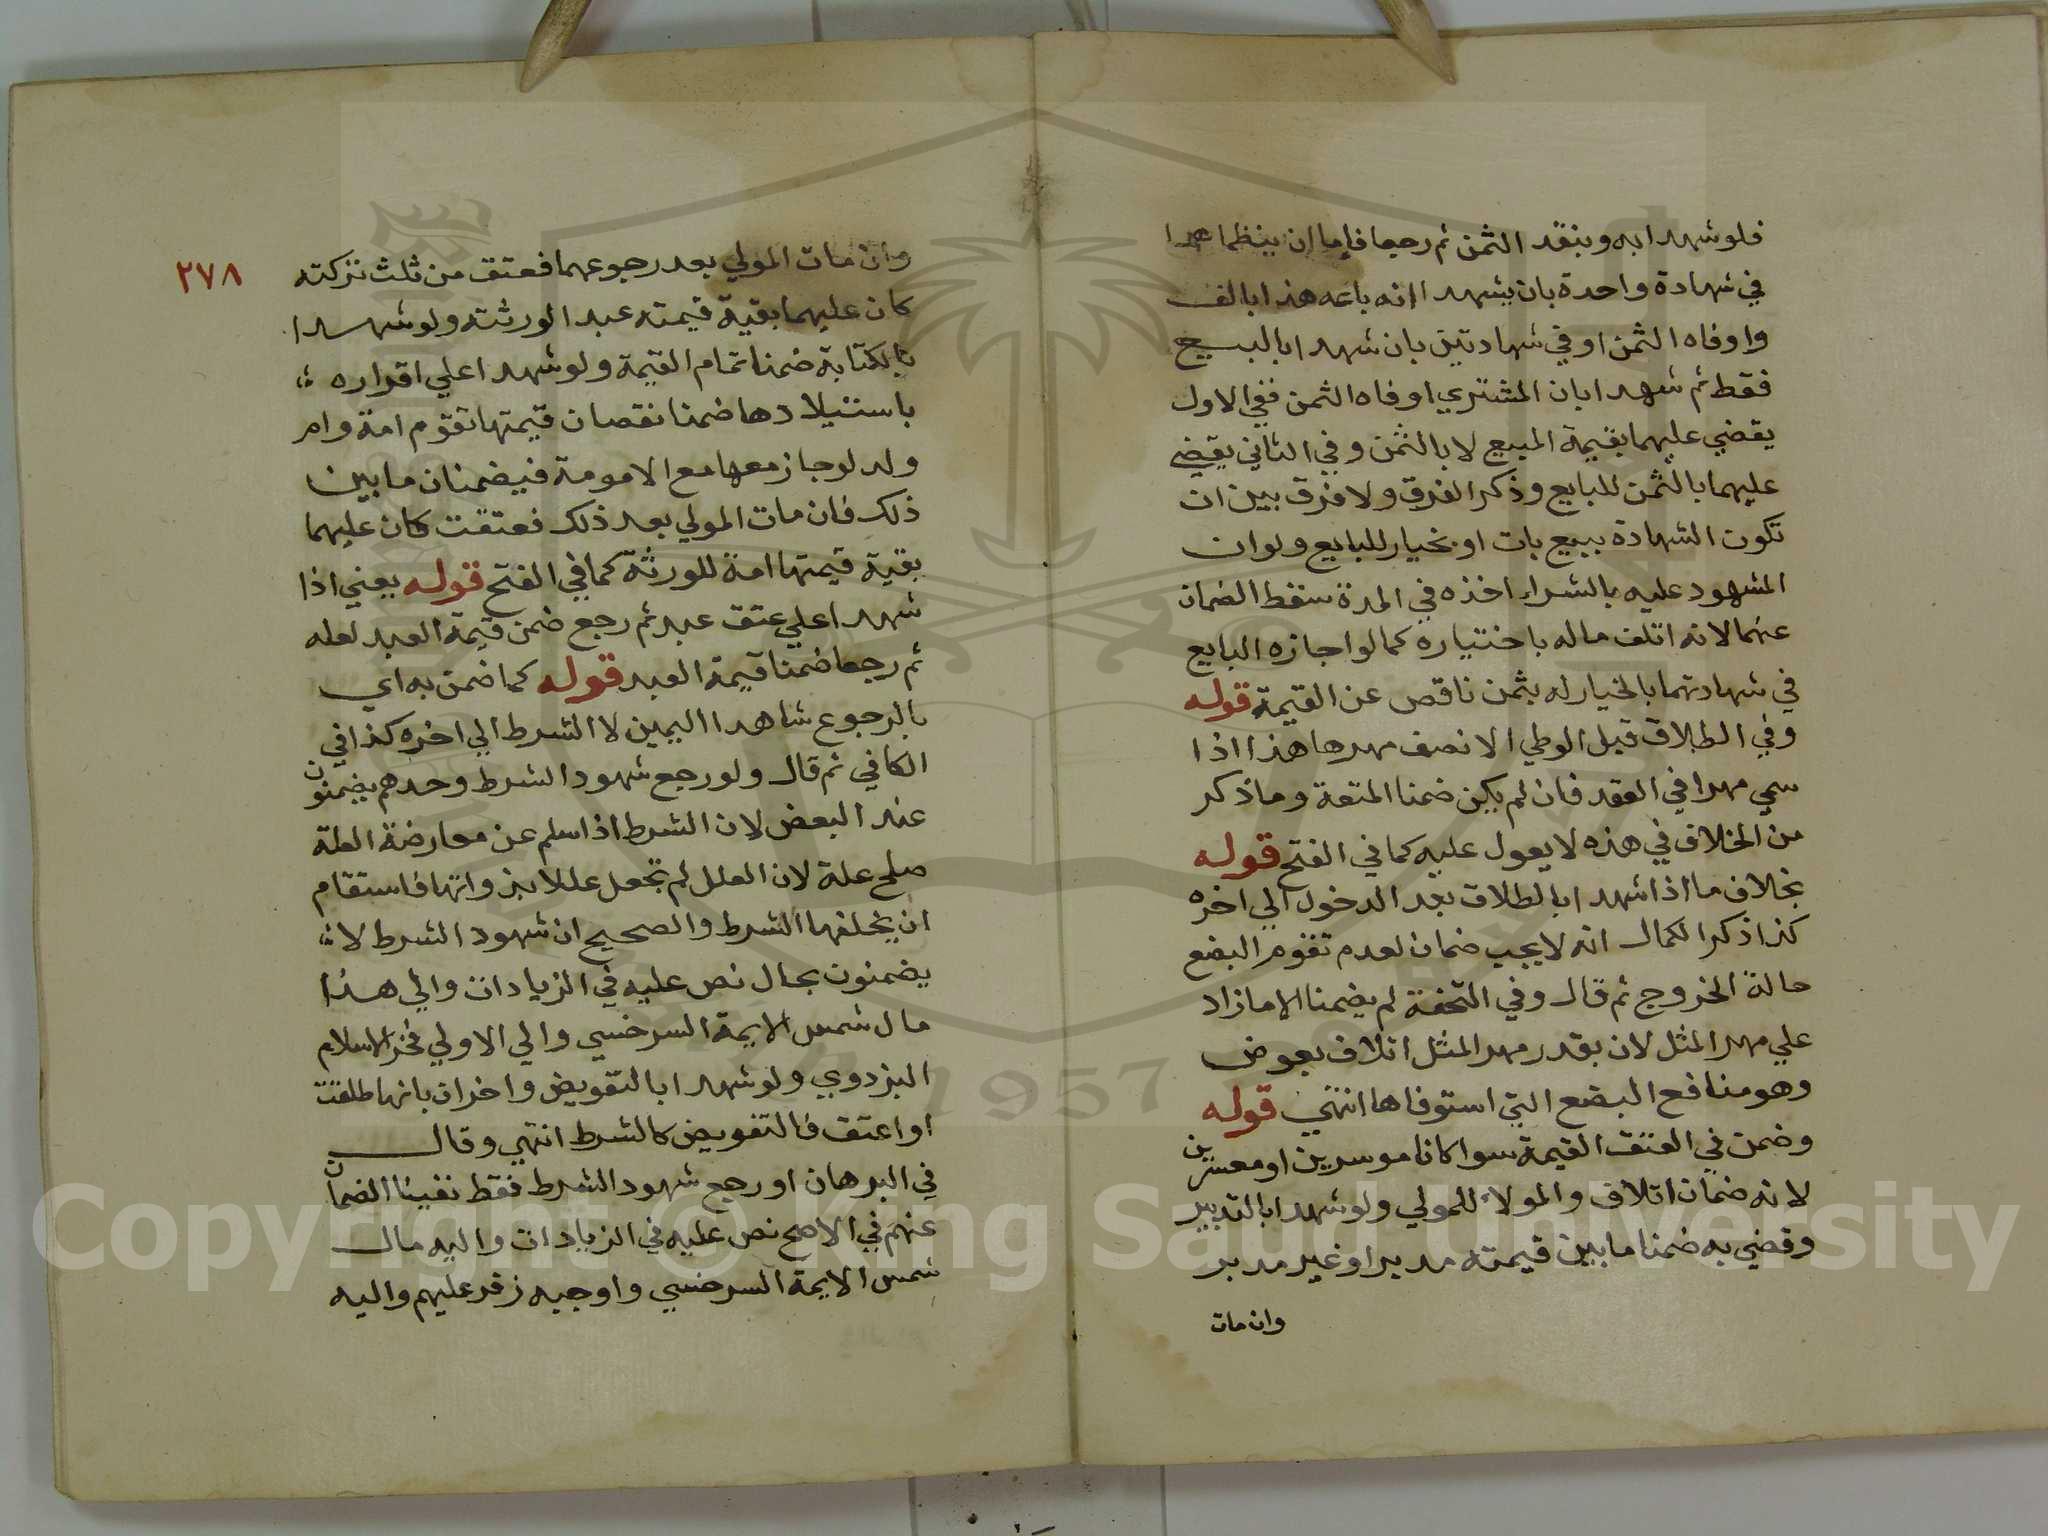 فلو شهدا به وبنقد الثمن ثم رجعا فاما ان ينظما
في شهادة واحدة بان يشهدا انه باعه هذا بالف
واوفاه الثمن او في شهادتين بان شهدا بالبيع
فقط ثم شهدا بان المشتري اوفاه الثمن ففي الاول
يقضي عليهما بقيمة المبيع لا بالثمن وفي الثاني يقضي
عليهما بالثمن للبايع وذكر الفرق ولا فرق بين ان
تكون الشهادة ببيع بات او بخيار للبايع ولو ان
المشهود عليه بالشراء اخذه في المدة سقط الضمان
عنهما لانه اتلف ماله باختياره كما لو اجازه البايع
في شهادتهما بالخيار له بثمن ناقص عن القيمة قوله
وفي الطلاق قبل الوطي الا نصف مهرها هذا اذا
سمي مهرا في العقد فان لم يكن ضمنا المتعة وما ذكر
من الخلاف في هذه لا يعول عليه كما في الفتح قوله
بخلاف ما اذا شهدا بالطلاق بعد الدخول الي اخره
كذا ذكر الكمال انه لا يجب ضمان لعدم تقوم البضع
حالة الخروج ثم قال وفي التحفة لم يضمنا الا ما زاد
علي مهر المثل لان بقدر مهر المثل اتلاف بعوض
وهو منافع البضع التي استوفاها انتهي قوله
وضمن في العتق القيمة سوا كانا موسرين او معسرين
لانه ضمان اتلاف والولاء للمولي ولو شهدا بالتدبير
وقضي به ضمنا ما بين قيمته مدبرا وغير مدبر
وان مات
٢٧٨
وان مات المولي بعد رجوعهما فعتق من ثلث تركته
كان عليهما بقية قيمته عبدا لورثته ولو شهدا
بالكتابة ضمنا تمام القيمة ولو شهدا علي اقراره
باستيلادها ضمنا نقصان قيمتها تقوم امة وام
ولد لو جاز معها مع الامومة فيضمنان ما بين
ذلك فان مات المولي بعد ذلك فعتقت كان عليهما
بقية قيمتها امة للورثة كما في الفتح قوله يعني اذا
شهدا علي عتق عبد ثم رجع ضمن قيمة العبد لعله
ثم رجعا ضمنا قيمة العبد قوله كما ضمن به اي
بالرجوع شاهدا اليمين لا الشرط الي اخره كذا في
الكافي ثم قال ولو رجع شهود الشرط وحدهم يضمنون
عند البعض لان الشرط اذا سلم عن معارضة العلة
صلح علة لان العلل لم تجعل عللا بذواتها فاستقام
ان يخلفها الشرط والصحيح ان شهود الشرط لا
يضمنون بحال نص عليه في الزيادات والي هذا
مال شمس الايمة السرخسي والي الاولي فخر الاسلام
البزدوي ولو شهدا بالتفويض واخران بانها طلقت
او اعتق فالتفويض كالشرط انتهي وقال
في البرهان او رجع شهود الشرط فقط نفينا الضمان
عنهم في الاصح نص عليه في الزيادات واليه مال
شمس الايمة السرخسي واوجبه زفر عليهم واليه
Copyright © King Saud University
1957